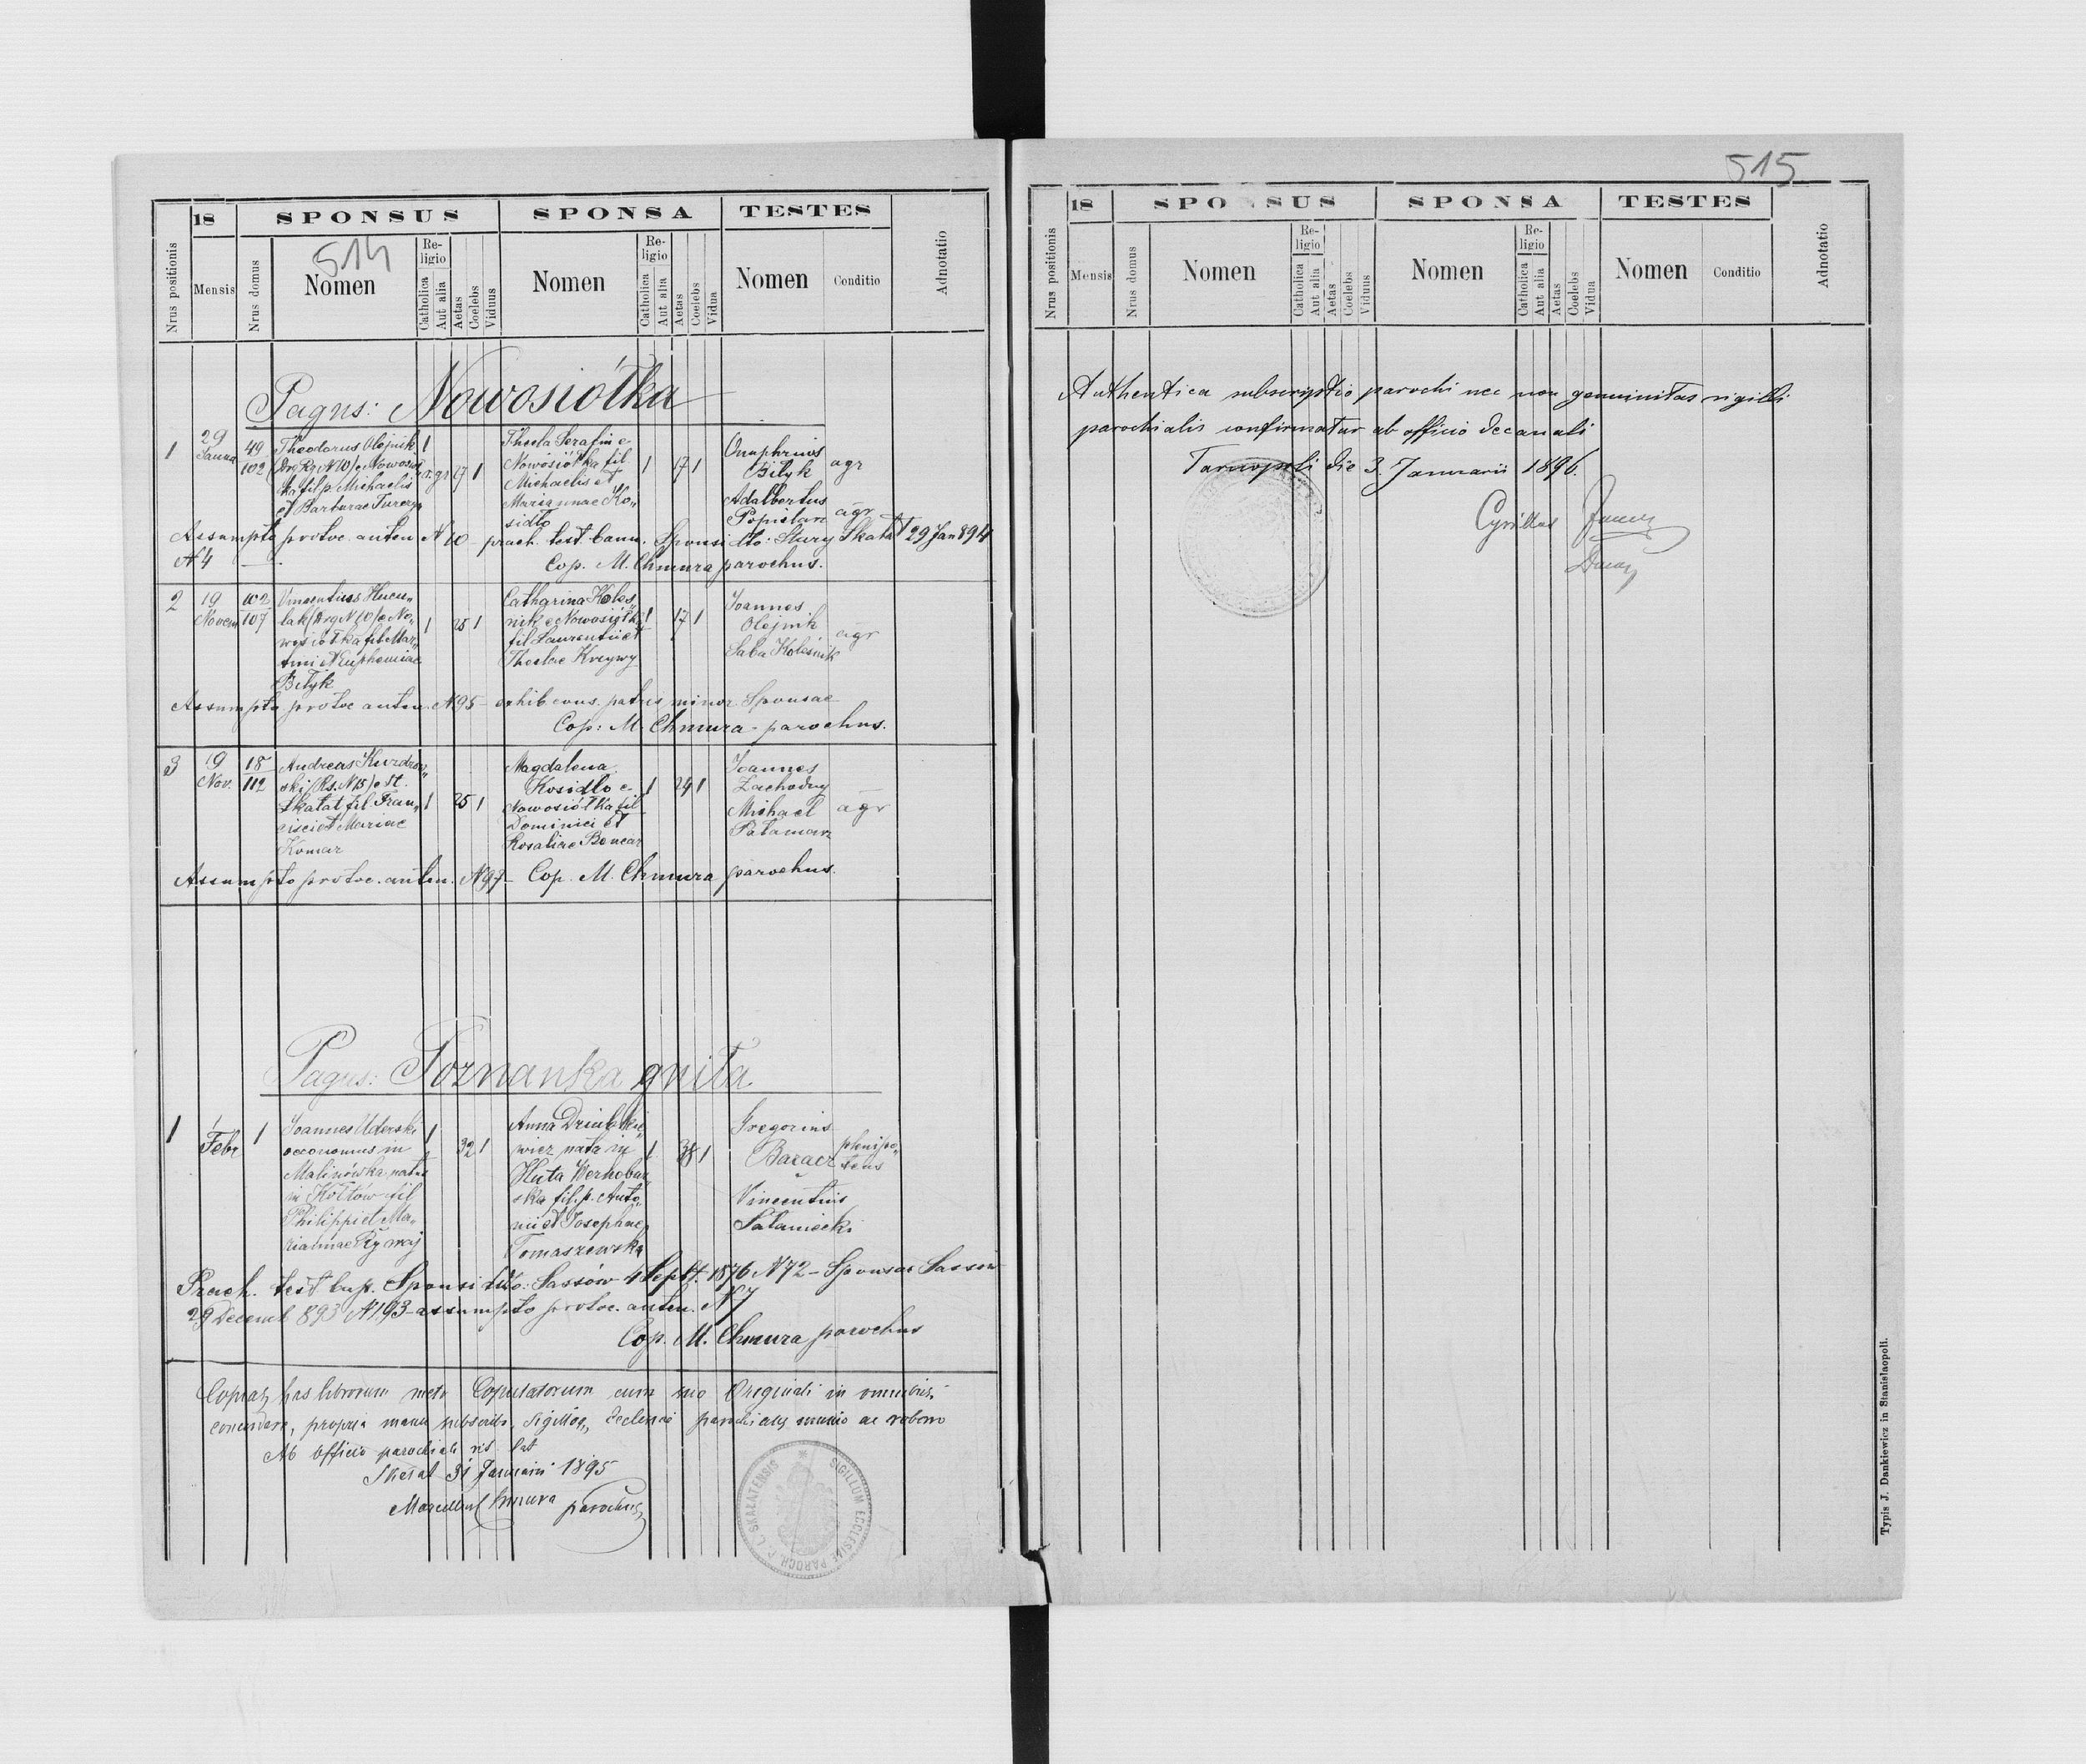 514
18
SPONSUS
SPONSA
TESTES
Nrus positionis
Mensis
Nrus domus
Nomen
Religio
Catholica
Aut alia
Aetas
Coelebs
Viduus
Nomen
Religio
Catholica
Aut alia
Aetas
Coelebs
Vidua
Nomen
Conditio
Adnotatio
Pagus: Nowosiółka
1
29
49
102
Theodorus Olejnik
ka fil p. Michaelis
et Barbarae
r. gr
1
Thecla Serafin e
Nowosiółka fil
Michaelis et
Mariannae Ko„
sidło
1
17
1
Onuphrius
Biłyk
agr
Adalbertus
agr
Assumpto protoc. anten N 10 - prach. test. bann. Sponsi dto: Stary Skałat 29 Jan 894
N 4
Cop. M. Chmura parochus.
2
19
Novem
102
107
Vincentius Hucu„
lak (Drg N 10) e No„
wosiółka fil Mar„
tini & Euphemiae
Biłyk
1
25
1
Catharina Koles„
nik e Nowosiółka
fil Laurentii et
Theclae Krzywy
1
17
1
Joannes
Olejnik
Saba Kolésnik
agr
Assumpto protoc anten. N 95 - exhib cons. patris minor. Sponsae
Cop: M. Chmura - parochus.
3
19
Nov.
18
112
Andreas Kurdzow„
ski (Rs. N 15) e St.
Skałat fil Fran„
cisci et Mariae
Komar
1
25
1
Magdalena
Kosidło e
Nowosiółka fil
Dominici et
Rosaliae Boncar
1
24
1
Joannes
Zachodny
Michael
Pałamarz
agr
Assumpto protoc. anten. N 97 - Cop. M. Chmura parochus.
Pagus: Poznanka gniła
1
1
Febr
1
Joannes Uderski
oeconomus in
Malinówka natus
in Kołtów fil
Philippi et Ma„
riannae
1
32
1
Anna
wicz nata in
Huta Werhobuz
ska fil. p. Anto„
nii et Josephae
Tomaszewska
1
38
1
Gregorius
Baracz
plenipo„
tens
Vincentius
Sałaniecki
Prach. test bap. Sponsi dto: Sassów 4 Sept. 1876 N 72 - Sponsae Sassów
29 Decemb 893 N 193 - assumpto protoc. anten. N 7
Cop. M. Chmura parochus
Copiam has librorum metr Copulatorum cum suo Originali in omnibus
concordare, propria manu subscribo, Sigilloq„ Ecclesiae parochialis munio ac roboro
Ab officio parochiali rit. lat
Skałat 31 Januarii 1895
Marcellus Chmura parochus
SIGILLUM ECCLESIAE PAROCH. R. L. SKAŁATENSIS
515
18
SPONSUS
SPONSA
TESTES
Nrus positionis
Mensis
Nrus domus
Nomen
Religio
Catholica
Aut alia
Aetas
Coelebs
Viduus
Nomen
Religio
Catholica
Aut alia
Aetas
Coelebs
Vidua
Nomen
Conditio
Adnotatio
Authentica subscriptio parochi nec non genuinitas sigilli
parochialis confirmatur ab officio decanali
Tarnopoli die 3. Januarii 1896.
Cyrillus
Typis J. Dankiewicz in Stanislaopoli.